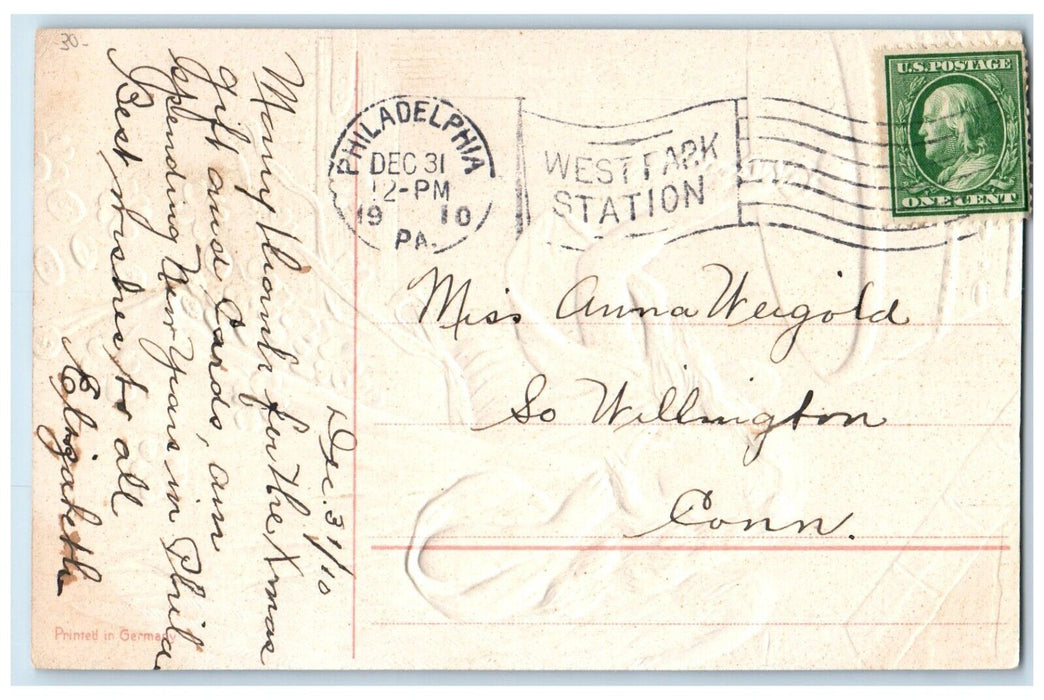 30-
Dec. 31/10
Many thanks for the Xmas
gift and Cards, am
spending New Years in Phila
Best wishes to all
Elizabeth
PHILADELPHIA
DEC 31
12-PM
19 10
PA.
WEST PARK
STATION
U.S. POSTAGE
ONE CENT
Miss Anna Weigold
So Willington
Conn.
Printed in Germany